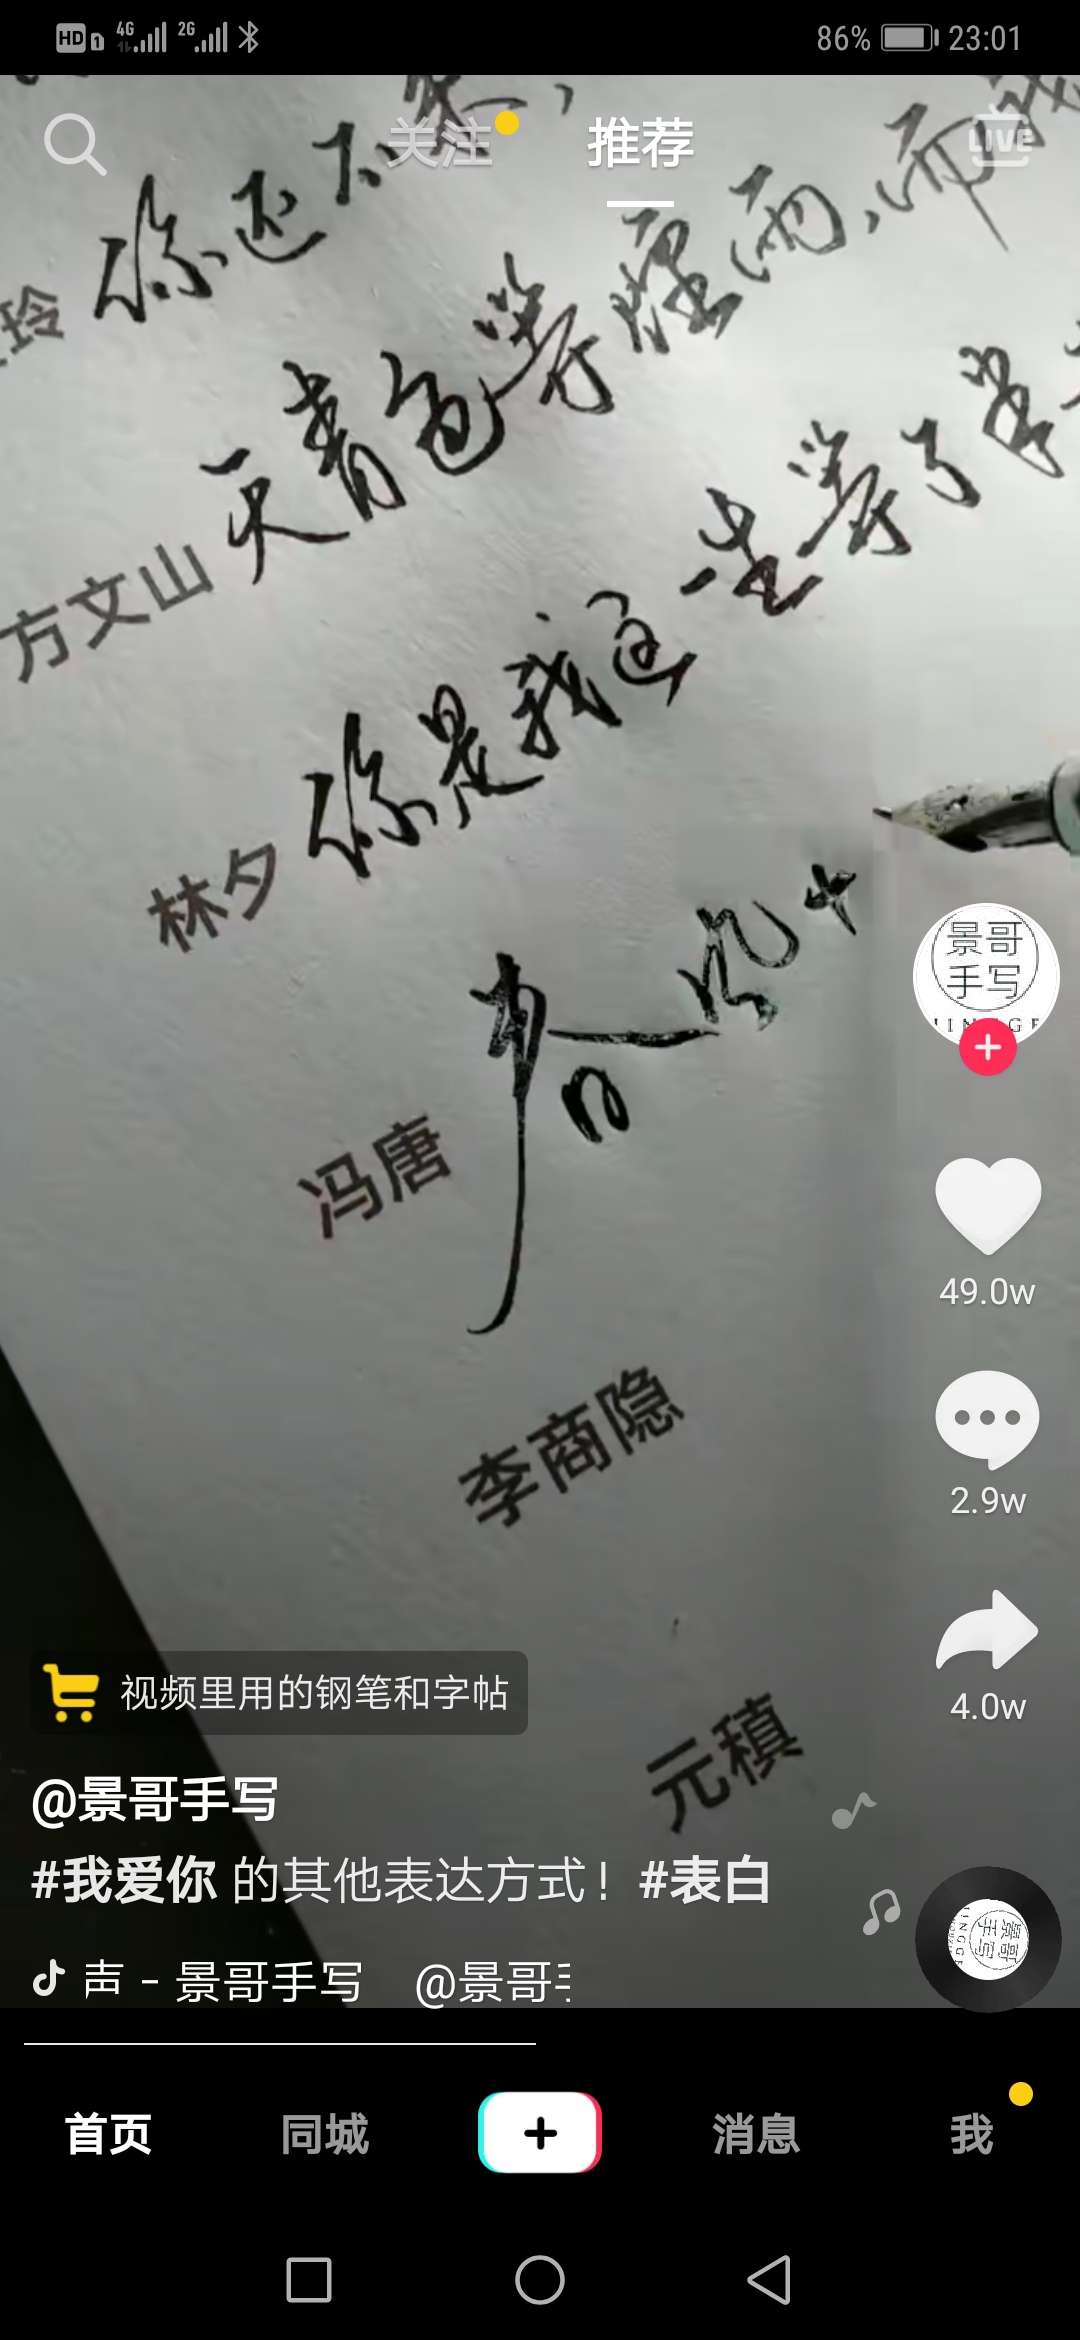 HD 1 4G 2G 86% 23:01
关注 推荐 LIVE
玲 你还不来,
方文山 天青色等烟雨,而我
林夕 你是我这一生等了半
冯唐 春风十
李商隐
元稹
景哥
手写
49.0w
2.9w
4.0w
视频里用的钢笔和字帖
@景哥手写
#我爱你 的其他表达方式! #表白
声 - 景哥手写 @景哥
首页 同城 消息 我